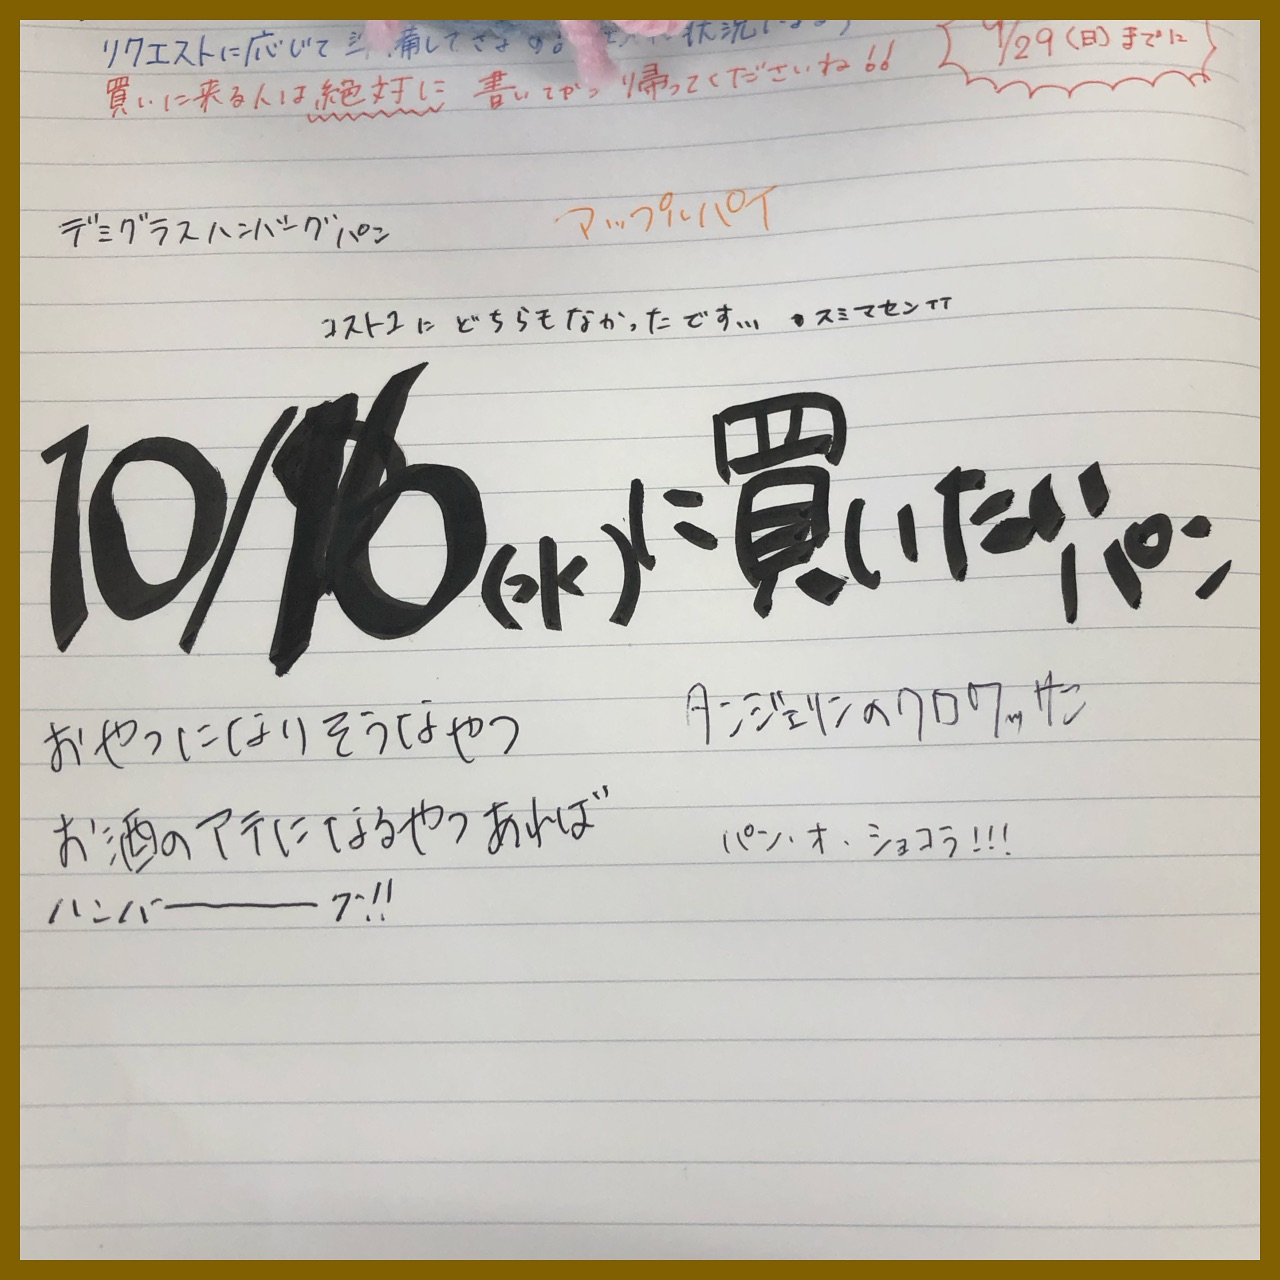 リクエストに応じて準備してきますので 状況になる
買いに来る人は絶対に 書いてから 帰ってくださいね!!
9/29(日)までに
デミグラスハンバーグパン
アップルパイ
コストコにどちらもなかったです... ・スミマセンTT
10/16(水)に買いたいパン
おやつになりそうなやつ
タンジェリンのクロワッサン
お酒のアテになるやつあれば
パン・オ・ショコラ!!!
ハンバーーーーグ!!